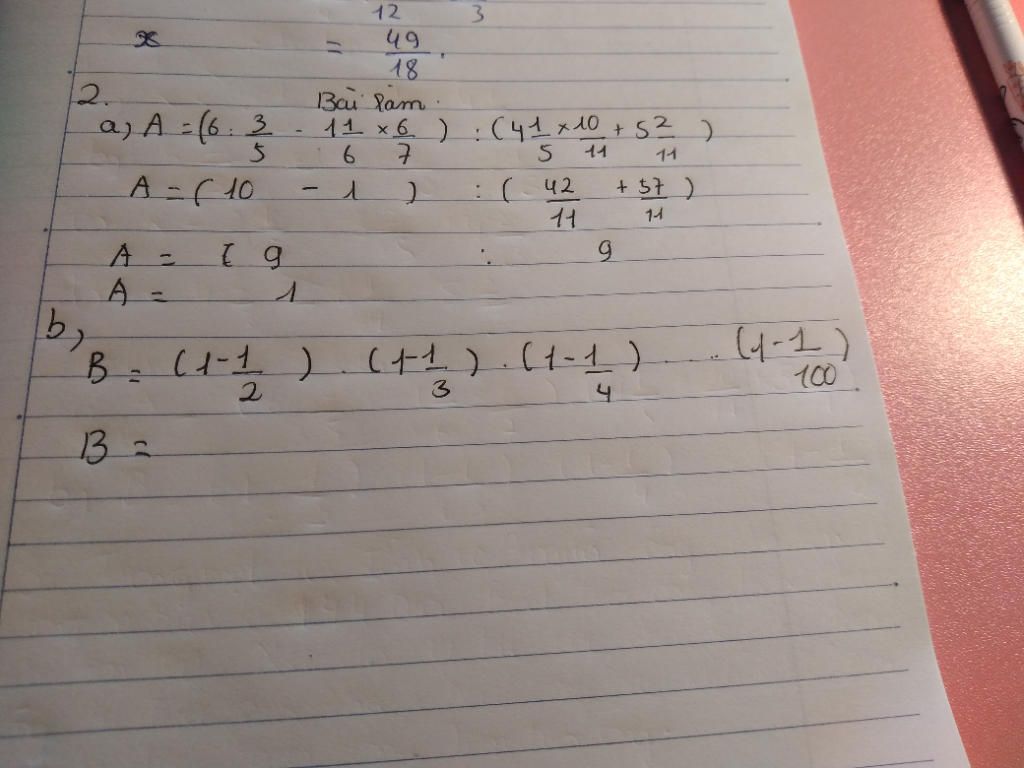 12 3
x = 49/18.
2. Bài làm.
a, A = (6 : 3/5 - 1 1/6 × 6/7) : (4 1/5 × 10/11 + 5 2/11)
A = (10 - 1) : (42/11 + 57/11)
A = ( 9 : 9
A = 1
b,
B = (1-1/2) . (1-1/3) . (1-1/4) ..... (1-1/100)
B =